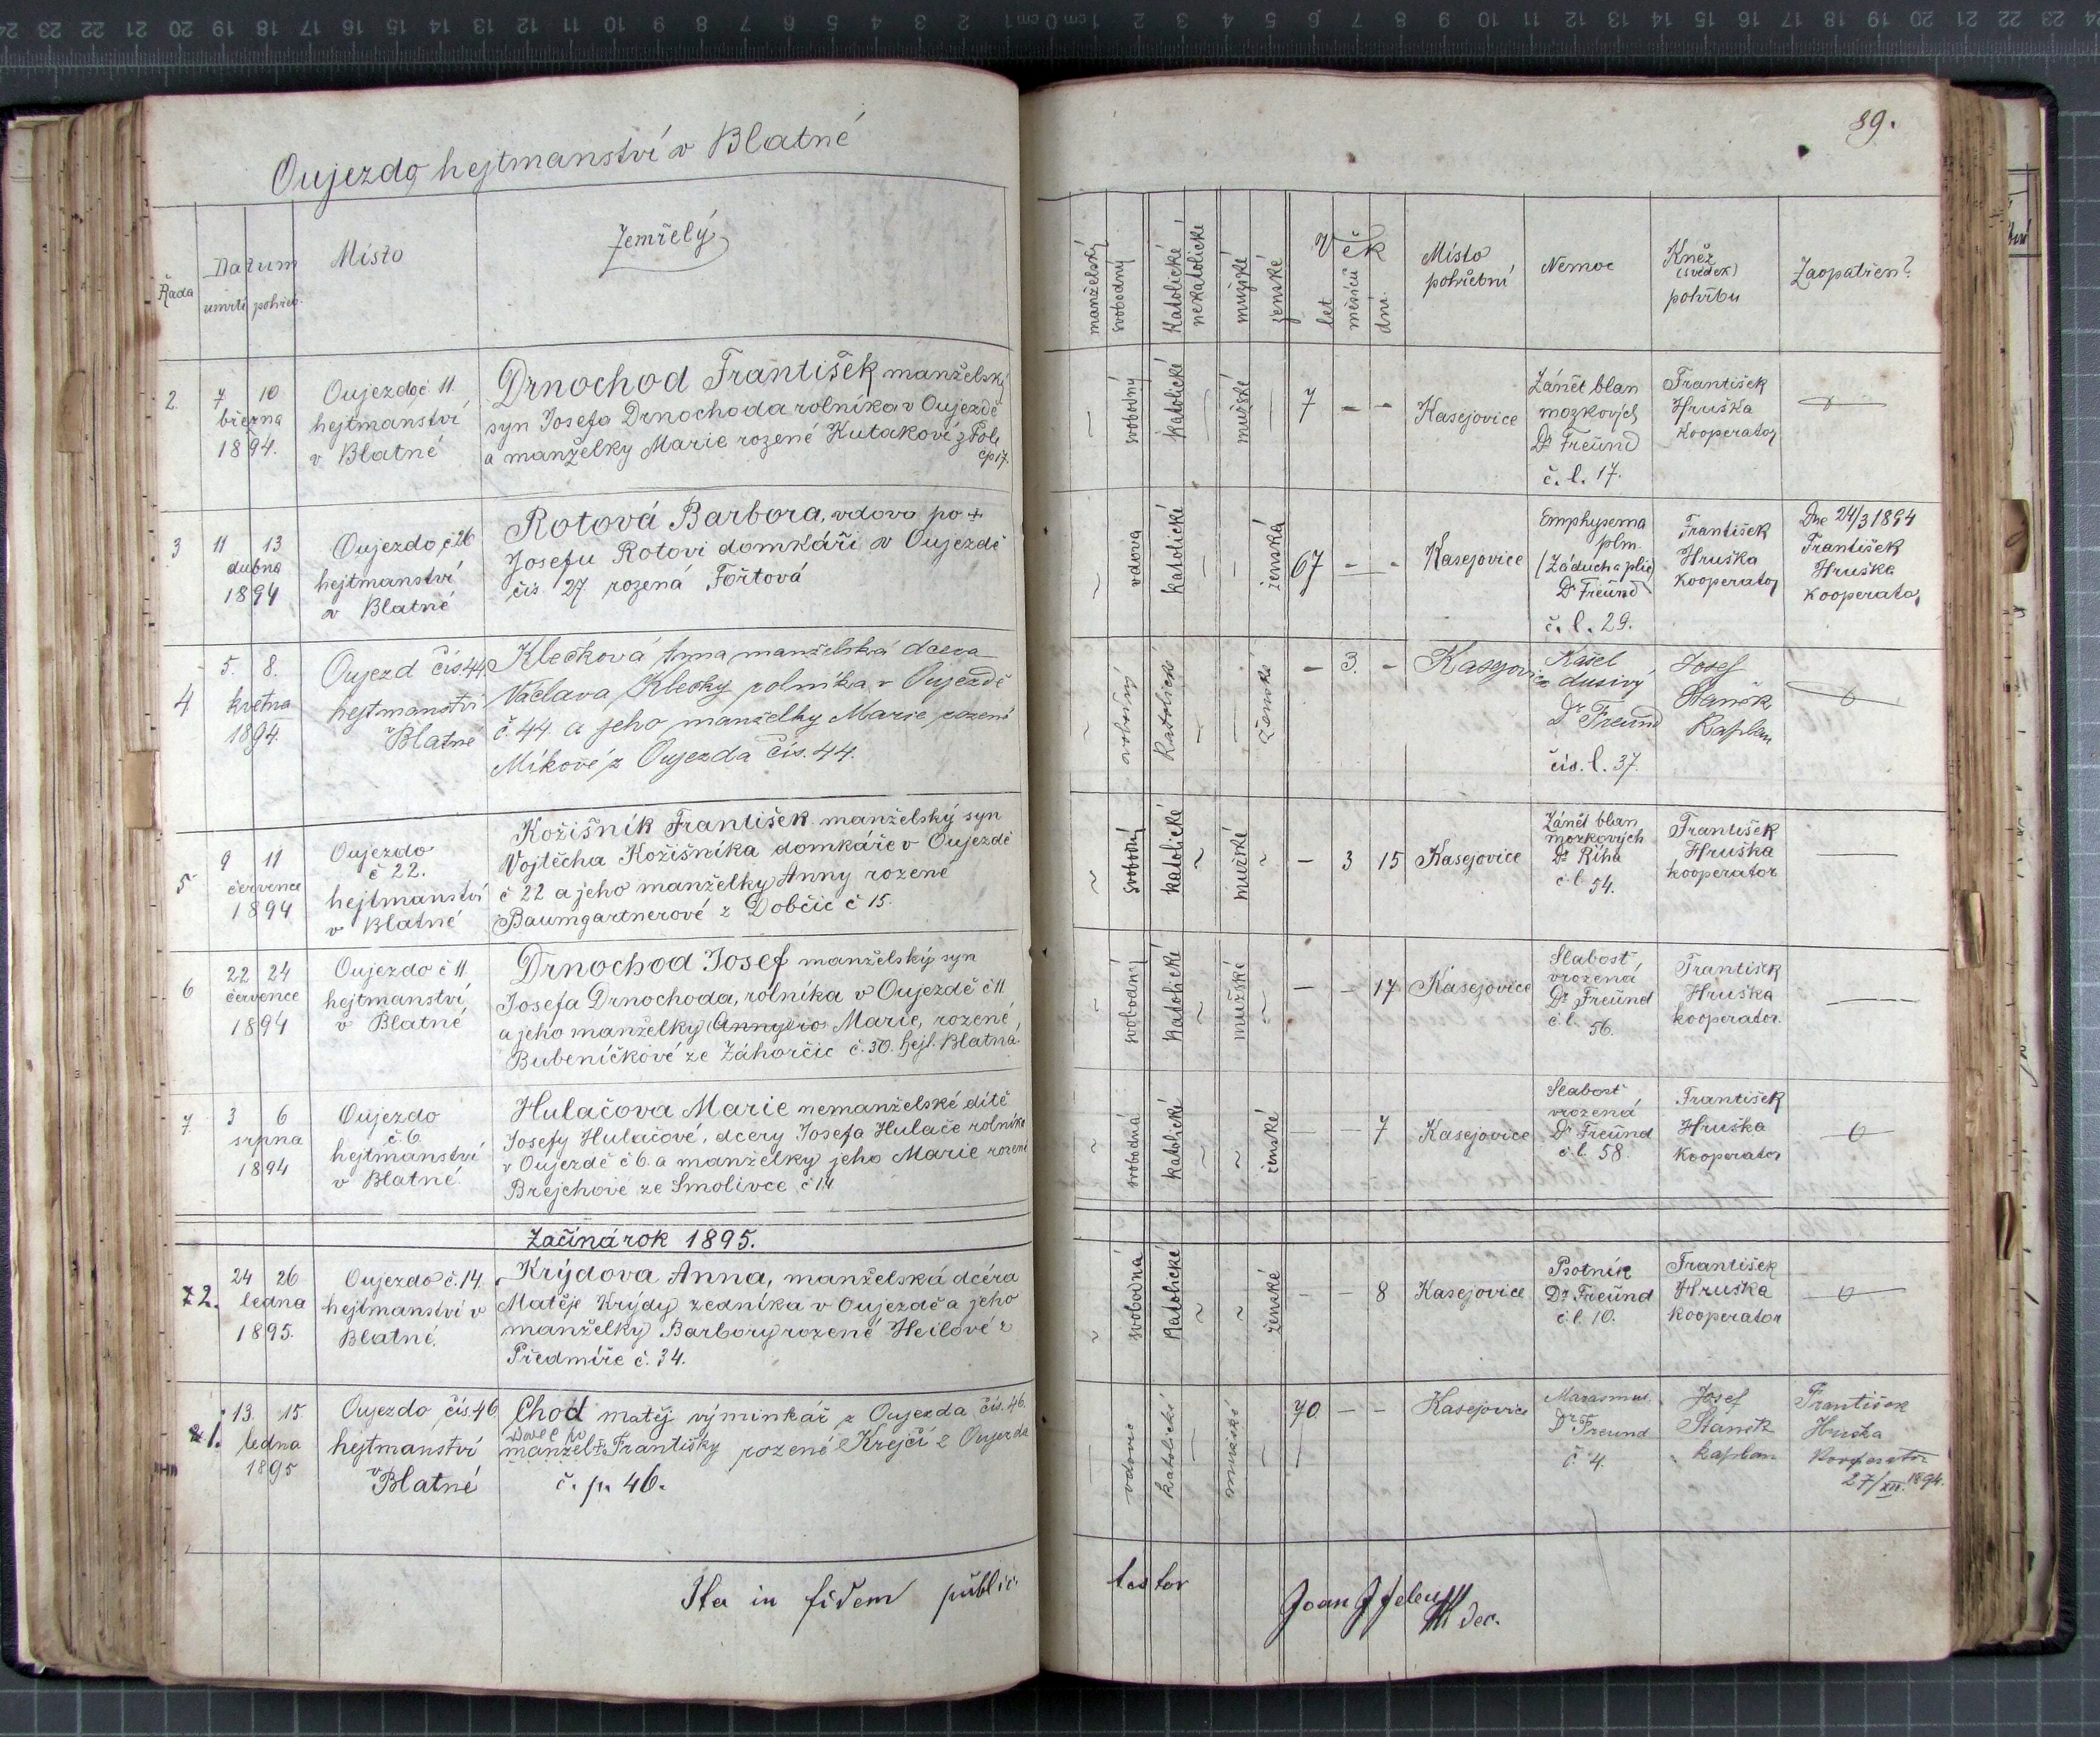 Oujezdo hejtmanství v Blatné
89.
Řada
Datum
úmrtí pohřeb.
Místo
Zemřelý
manželský
svobodný
Katolické
nekatolické
mužské
ženské
Věk
let
měsíců
dní
Místo
pohřební
Nemoc
Kněz
(svědek)
pohřbu
Zaopatřen?
2. 7 10
března
1894.
Oujezdo č 11.
hejtmanství
v Blatné
Drnochod František manželský
syn Josefa Drnochoda rolníka v Oujezdě
a manželky Marie rozené Kutakové z Pole
čp 17.
svobodný
katolické
mužské
7 - -
Kasejovice
Zánět blan
mozkových
Dr Freund
č. l. 17.
František
Hruška
Kooperator
3 11 13
dubna
1894
Oujezdo č 26
hejtmanství
v Blatné
Rotová Barbora, vdova po +
Josefu Rotovi domkáři v Oujezdě
čís. 27 rozená Fořtová
vdova
katolické
ženská
67 - -
Kasejovice
Emphysema
plm.
(Záducha plic)
Dr Freund
č. l. 29.
František
Hruška
kooperator
Dne 24/3 1894
František
Hruška
kooperator
4 5. 8.
května
1894.
Oujezd čís 44.
hejtmanství
Blatné
Klečková Anna manželská dcera
Václava Klečky rolníka v Oujezdě
č. 44. a jeho manželky Marie rozené
Míkové z Oujezda čís. 44.
svobodný
katolické
ženské
- 3. -
Kasejovice
Kašel
dusivý
Dr Freund
čís. l. 37.
Josef
Staněk
Kaplan
5 9 11
července
1894
Oujezdo
č 22.
hejtmanství
v Blatné
Kožišník František manželský syn
Vojtěcha Kožišníka domkáře v Oujezdě
č 22 a jeho manželky Anny rozené
Baumgartnerové z Dobčic č 15.
svobodný
katolické
mužské
- 3 15
Kasejovice
Zánět blan
mozkových
Dr Říha
č. l. 54.
František
Hruška
kooperator
6 22 24
července
1894
Oujezdo č 11.
hejtmanství
v Blatné
Drnochod Josef manželský syn
Josefa Drnochoda, rolníka v Oujezdě č 11
a jeho manželky Anny ro Marie, rozené
Bubeníčkové ze Záhorčic č. 30. hejt. Blatná.
svobodný
katolické
mužské
- - 17
Kasejovice
Slabost
vrozená
Dr Freund
č. l. 56.
František
Hruška
kooperator.
7. 3 6
srpna
1894
Oujezdo
č. 6.
hejtmanství
v Blatné.
Hulačova Marie nemanželské dítě
Josefy Hulačové, dcery Josefa Hulače rolníka
v Oujezdě č 6. a manželky jeho Marie rozené
Brejchové ze Smolivce č 14.
svobodná
katolické
ženské
- - 7
Kasejovice
Slabost
vrozená
Dr Freund
č. l. 58.
František
Hruška
kooperator
Začíná rok 1895.
2. 24 26
ledna
1895.
Oujezdo č. 14.
hejtmanství v
Blatné.
Krýdova Anna, manželská dcéra
Matěje Krýdy zedníka v Oujezdě a jeho
manželky Barbory rozené Heilové z
Předmíře č. 34.
svobodná
katolické
ženské
- - 8
Kasejovice
Psotník
Dr Freund
č. l. 10.
František
Hruška
kooperator
1. 13. 15.
ledna
1895
Oujezdo čís. 46
hejtmanství
v Blatné
Chod matěj výminkář z Oujezda čís. 46.
vdovec po
manželce Františky rozené Krejčí z Oujezda
č. p. 46.
vdovec
katolické
mužské
70 - -
Kasejovice
Marasmus.
Dr Freund
č. 4.
Josef
Staněk
kaplan
František
Hruška
Kooperator
27/XII. 1894.
Ita in fidem publi
testor
Joan J Jeleu
dec.